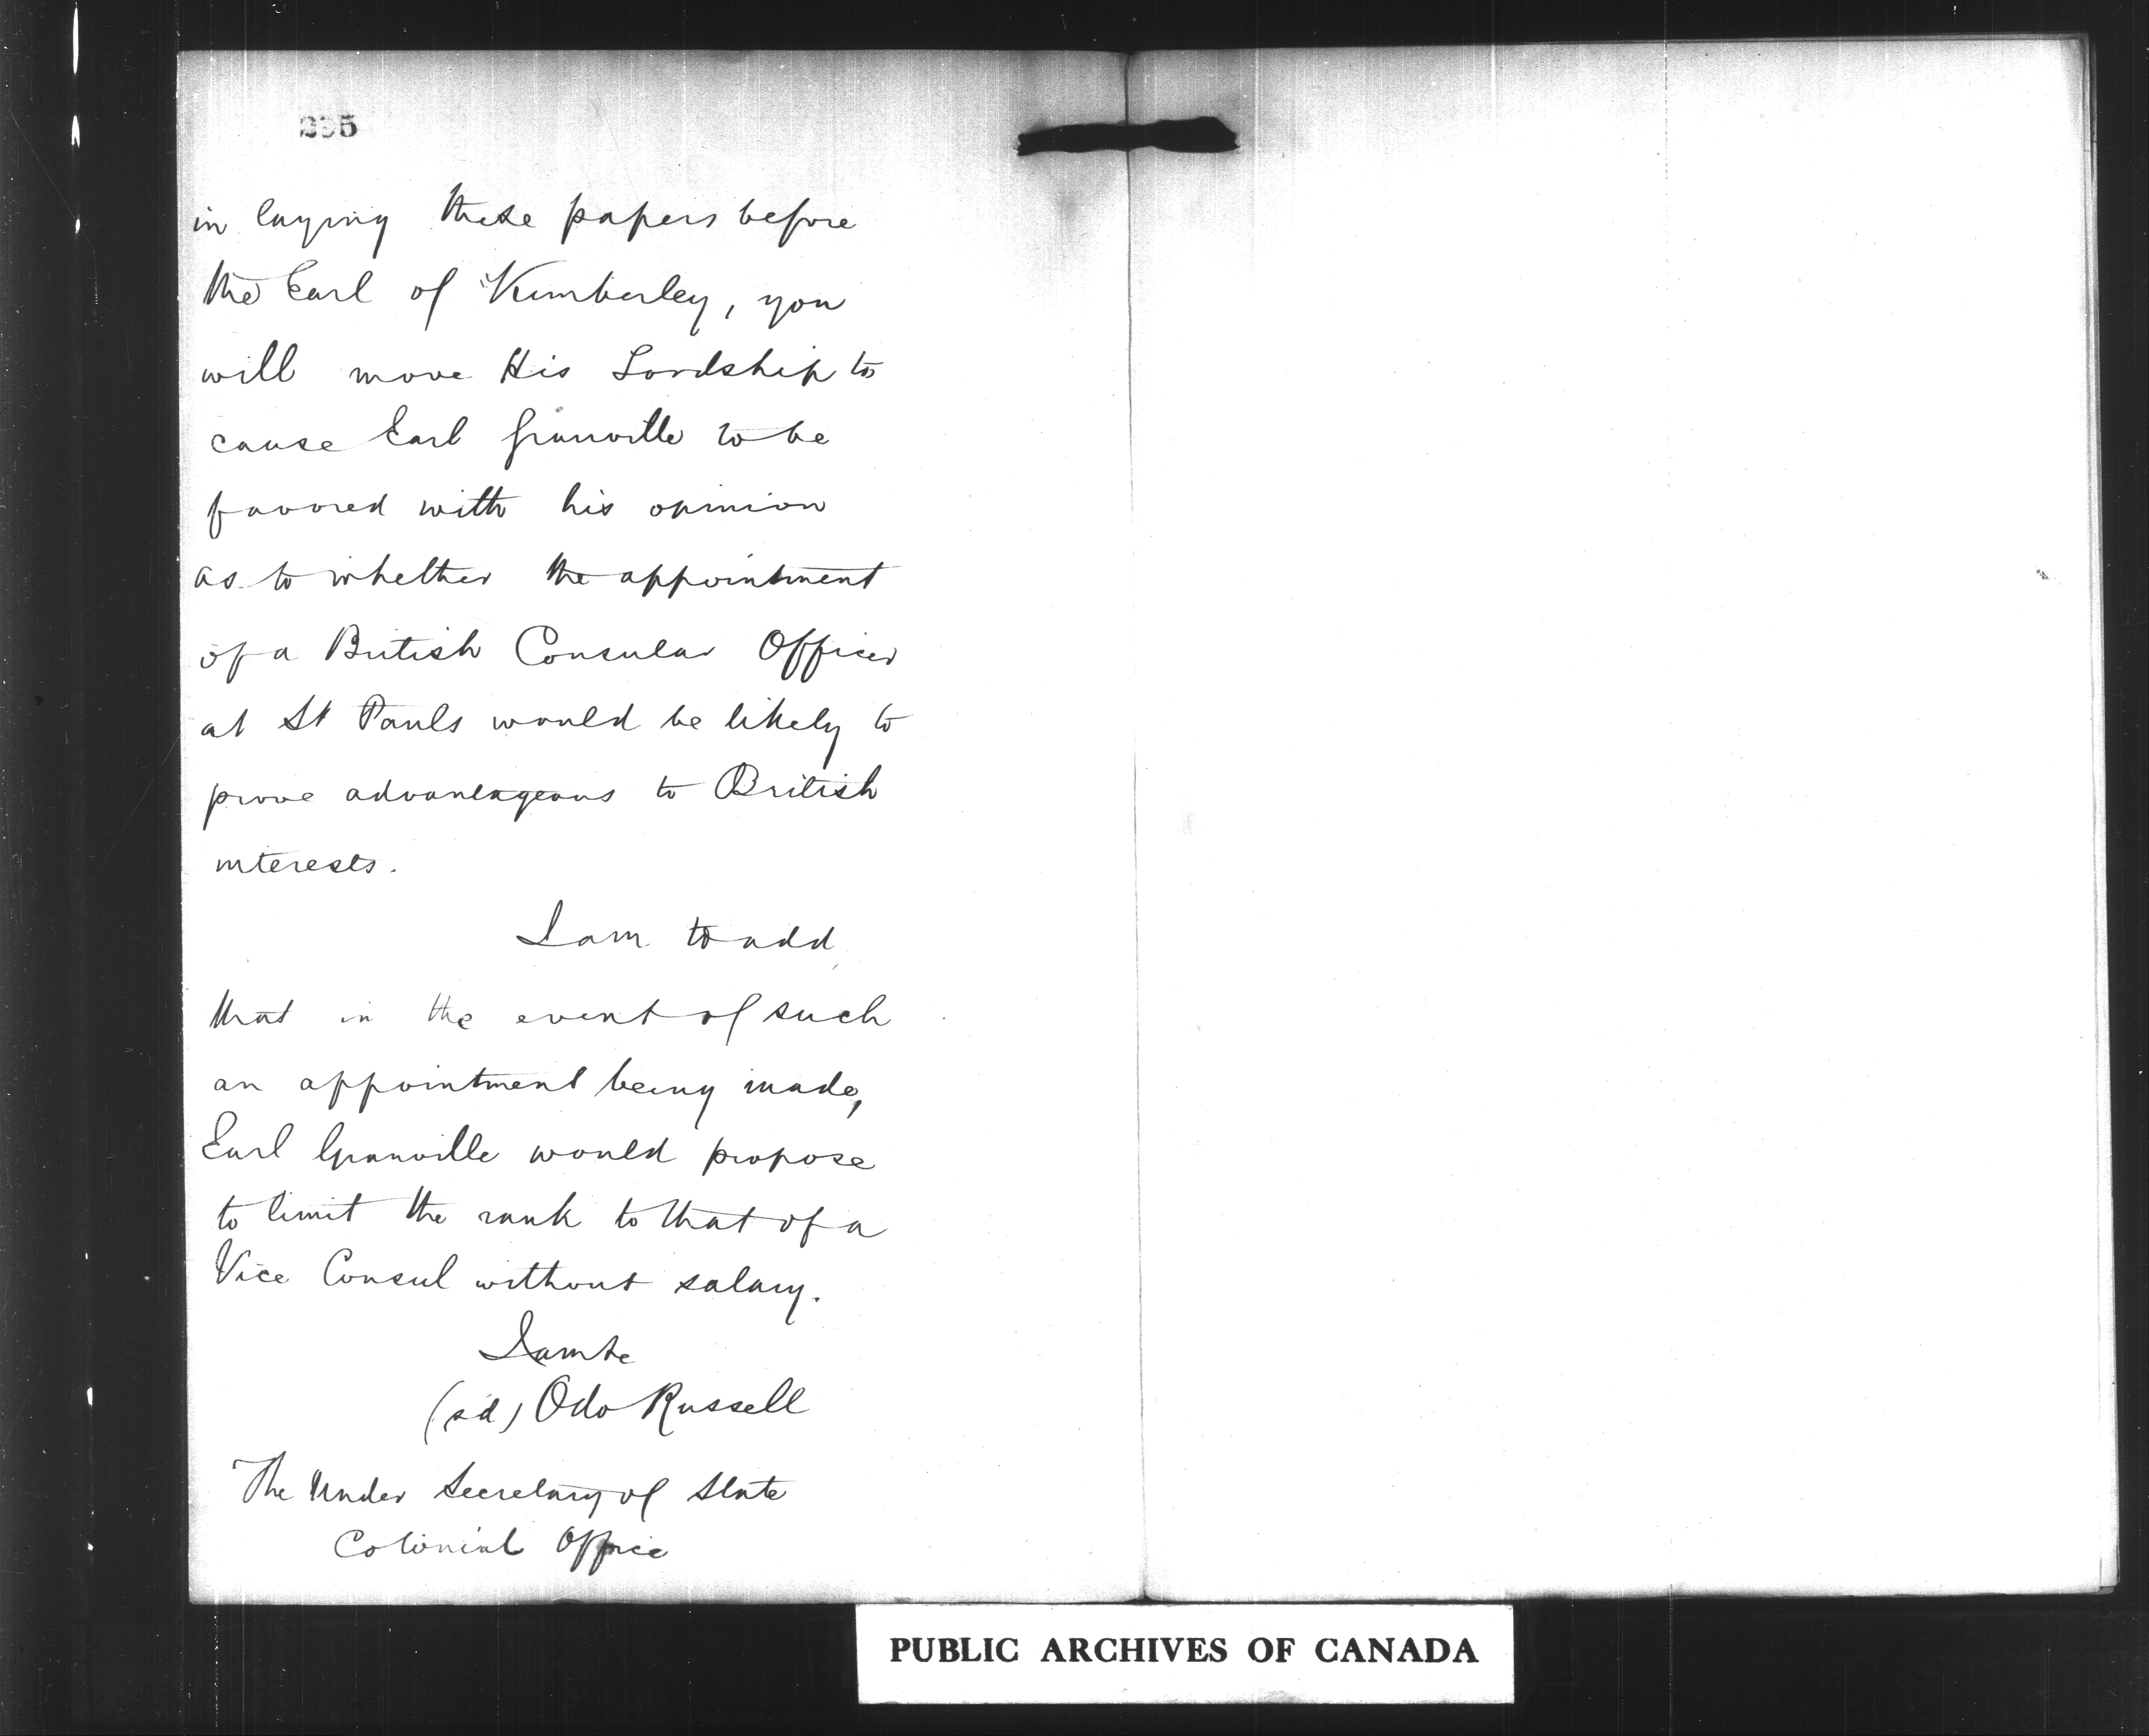 235
in laying these papers before
the Earl of Kimberley, you
will move His Lordship to
cause Earl Granville to be
favored with his opinion
as to whether the appointment
of a British Consular Officer
at St Pauls would be likely to
prove advantageous to British
interests.
I am to add
that in the event of such
an appointment being made,
Earl Granville would propose
to limit the rank to that of a
Vice Consul without salary.
I am &c
(sd) Odo Russell
The Under Secretary of State
Colonial Office
PUBLIC ARCHIVES OF CANADA